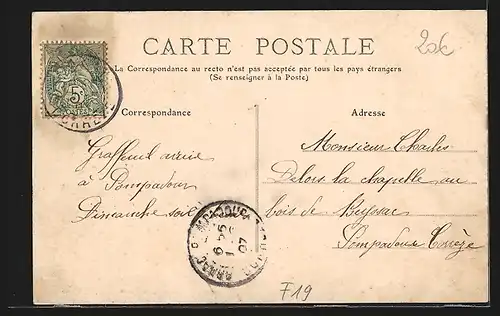 CARTE POSTALE
20€
La Correspondance au recto n'est pas acceptée par tous les pays étrangers
(Se renseigner à la Poste)
5
Correspondance
Adresse
Graffeuil arrive
à Pompadour
Dimanche soir
Monsieur Charles
Delors la chapelle au
bois de Beyssac
Pompadour Corrèze
F19